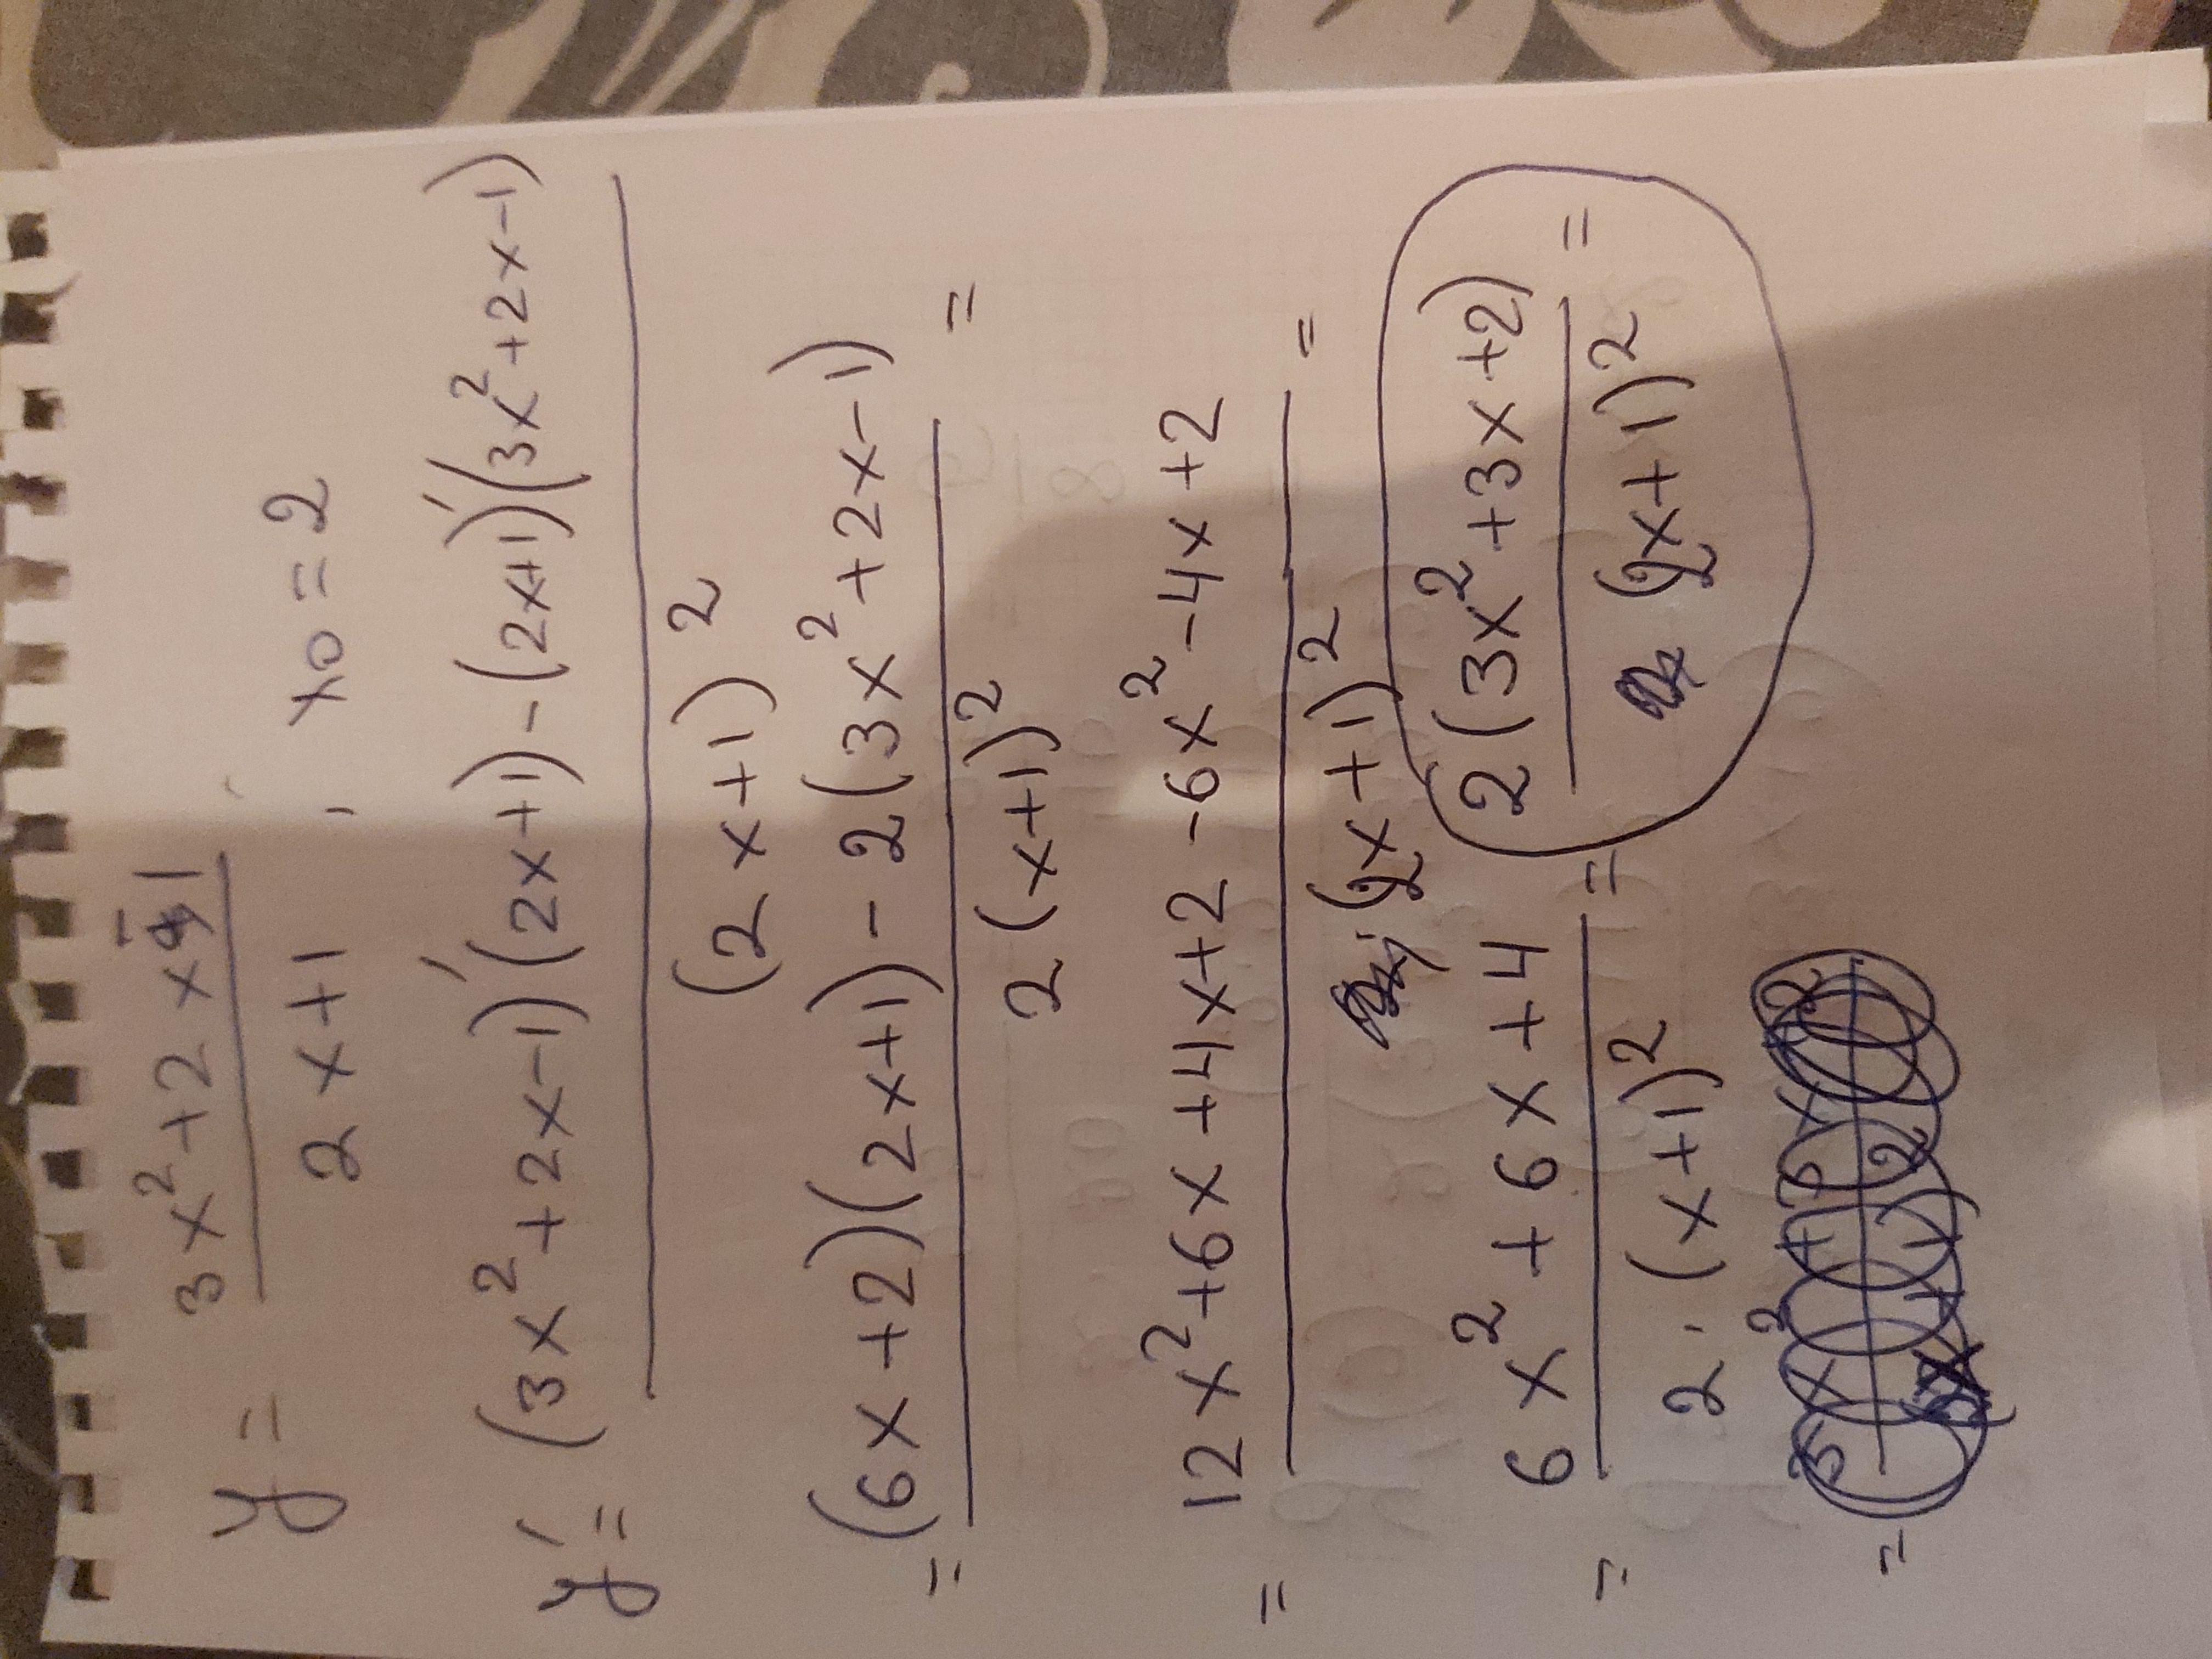 y = (3x²+2x-1)/(2x+1) , x0=2
y' = ((3x²+2x-1)'(2x+1)-(2x+1)'(3x²+2x-1))/(2x+1)²
= ((6x+2)(2x+1)-2(3x²+2x-1))/2(x+1)² =
= (12x²+6x+4x+2-6x²-4x+2)/(2x+1)² =
= (6x²+6x+4)/2·(x+1)² = 2(3x²+3x+2)/(2x+1)² =
=